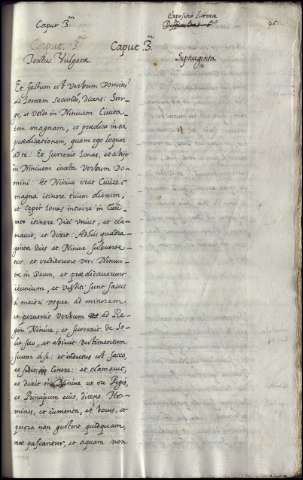 Caput 3.m
Expositio
25
Caput 3.m
Caput 3.m
Textus Vulgata
Septuaginta
Et factum est Verbum Domini
ad Ionam secundo, dicens: Sur-
ge, et Vade in Niniuem Ciuita-
tem magnam, et praedica in ea
praedicationem, quam ego loquor
ad te: Et surrexit Ionas, et abijt
in Niniuem iuxta Verbum Do-
mini: Et Niniue erat Ciuitas
magna itinere trium dierum,
et cepit Ionas introire in Ciui-
tatem itinere Diei Vnius, et cla-
mauit, et dixit: Adhuc quadra-
ginta dies et Niniue subuerte-
tur. et crediderunt Viri Niniui-
tae in Deum, et praedicauerunt
ieiunium, et Vestiti sunt saccis
à maiore Vsque ad minorem
et peruenit Verbum ad Re-
gem Niniue, et surrexit de So-
lio suo, et abiecit Vestimentum
suum à se: et indutus est sacco,
et sedit in Cinere: et clamauit,
et dixit in Niniue ex ore Regis,
et Principum eius, dicens: Ho-
mines, et iumenta, et boues, et
pecora non gustent quidquam
nec pascantur, et aquam non